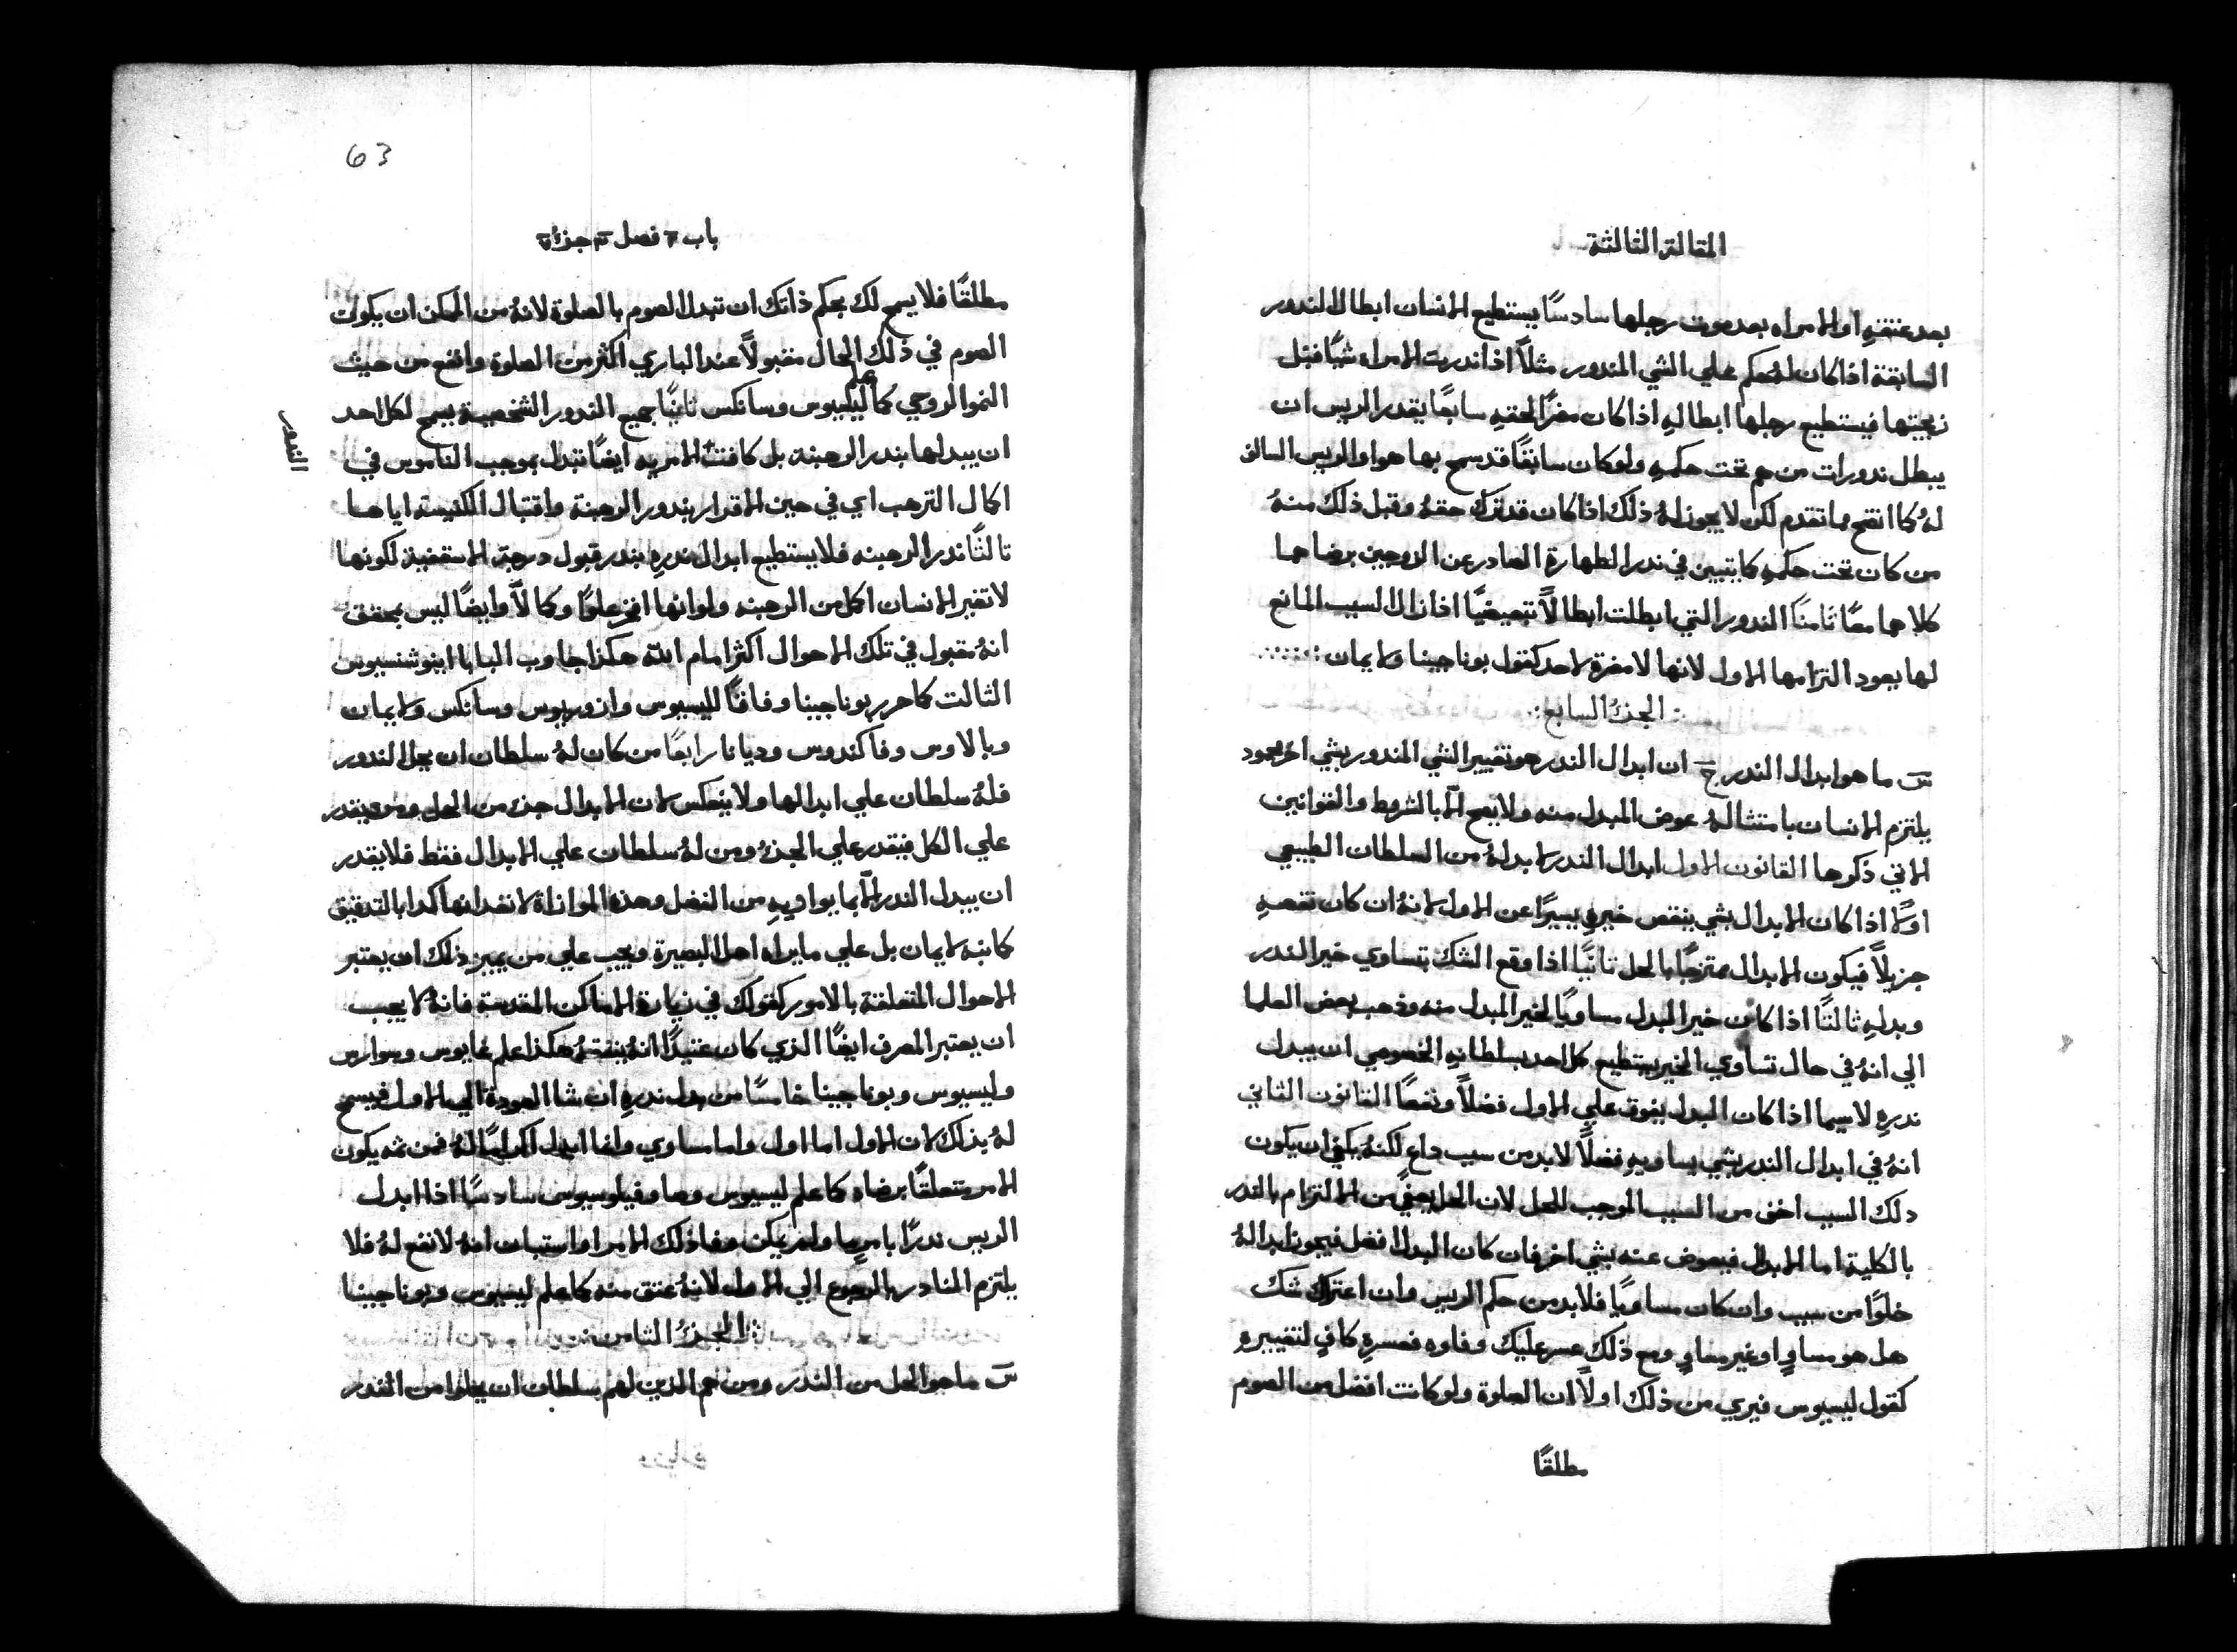 المقالة الثالثة
بعد عتقهِ او المراه بعد موت رجلها سادسًا يستطيع الانسان ابطال الندور
السابقة اذا كان لهُ حكم علي الشي المندور مثلاً اذا ندرت المراه شيًا قبل
زيجتها فيستطيع رجلها ابطالهِ اذا كان مضرًا لحقهِ سابعًا يقدر الريس ان
يبطل ندورات من هم تحت حكمهِ ولو كان سابقًا قد سمح بها هو او الريس السالف
لهُ كما اتضح مما تقدم لكن لا يجوز لهُ ذلك اذا كان قد ترك حقهُ وقبل ذلك منهُ
من كان تحت حكمهِ كما يتبين في ندر الطهارة الصادر عن الزوجين برضاهما
كلاهما معًا ثامنًا الندور التي ابطلت ابطالاً تبعيضيًا اذا زال السبب المانع
لها يعود التزامها الاول لانها لا مضرة لاحد كقول بوناجينا ولايمان
الجزءُ السابع
س ما هو ابدال الندر ج ان ابدال الندر هو تغيير الشي المندور بشي اخر محمود
يلتزم الانسان بامتثالهُ عوض المبدل منه ولا يصح الّا بالشروط والقوانين
الاتي ذكرها القانون الاول ابدال الندر لا بد لهُ من السلطان الطبيعي
اولاً اذا كان الابدال بشي ينقص خيرهِ يسيرًا عن الاول لانهُ ان كان نقصهِ
جزيلاً فيكون الابدال ممتزجًا بالحل ثانيًا اذا وقع الشك بتساوي خير الندر
وبدلهِ ثالثًا اذا كان خير البدل مساويًا لخير المبدل منه وذهب بعض العلما
الي انهُ في حال تساوي الخير يستطيع كل احد بسلطانهِ الخصوصي ان يبدل
ندرهِ لاسيما اذا كان البدل يفوق علي الاول فضلاً ونفعًا القانون الثاني
انهُ في ابدال الندر بشي يساويهِ فضلاً لابد من سبب داعٍ لكنهُ يكفي ان يكون
دلك السبب اخف من السبب الموجب للحل لان الحل يعفي من الالتزام بالندر
بالكلية اما الابدال فيعوض عنه بشي اخر فان كان البدل افضل فيجوز ابدالهُ
خلوًا من سبب وان كان مساويًا فلابد من حكم الريس وان اعتراك شك
هل هو مساوٍ او غير مساوٍ ومع ذلك عسر عليك وفاوه فعسرهِ كافٍ لتغييرهِ
كقول ليسيوس فيري من ذلك اولاً ان الصلوة ولو كانت افضل من الصوم
مطلقًا
63
باب ٢ فصل ٣ جزءُ ٧
مطلقًا فلا يسمح لك بحكم ذاتك ان تبدل الصوم بالصلوة لانهُ من الممكن ان يكون
الصوم في ذلك الحال مقبولاً عند الباري اكثر من الصلوة وانفع من حيث
النمو الروحي كما علم ليسيوس وسانكس ثانيًا جميع الندور الشخصية يسمح لكل احد
ان يبدلها بندر الرهبنة بل كافت الامريه ايضًا تبدل بموجب الناموس في
الندر
اكمال الترهب اي في حين الاقرار بندور الرهبنة واقتبال الكنيسة اياها
ثالثًا ندر الرهبنه فلا يستطيع ابدال ندرهِ بندر قبول درجة الاسقفية لكونها
لا تغير الانسان اكمل من الرهبنه ولو انها افخر علوًا وكمالاً وايضًا ليس بمحقق
انهُ مقبول في تلك الاحوال اكثر امام الله هكذا جاوب البابا اينوشنسيوس
الثالت كما حرر بوناجينا وفاقًا لليسيوس وازوريوس وسانكس ولايمان
وبالاوس وفاكندوس وديانا رابعًا من كان لهُ سلطان ان يحل الندور
فلهُ سلطان علي ابدالها ولا ينعكس لان الابدال جزء من الحل ومن يقدر
علي الكل فيقدر علي الجزء ومن لهُ سلطان علي الابدال فقط فلا يقدر
ان يبدل الندر الّا بما يوازيهِ من الفضل وهذه الموازاة لا نقد انها اكدا بالتدقيق
كما نبه لايمان بل علي ما يراه اهل البصيرة ويجب علي من يميز ذلك ان يعتبر
الاحوال المتعلقة بالامور كقولك في زيارة الاماكن المقدسة فانهُ لا يجب
ان يعتبر المصرف ايضًا الذي كان عتيدًا انهُ ينفقهُ هكذا علم غايوس وسوارس
وليسيوس وبوناجينا خامسًا من بدل ندرهِ ان شا العودة الي الاول فيسمح
لهُ بذلك لان الاول اما اول واما مساوي وانما ابدل اكرامًا لهُ فمن ثم يكون
الامر متعلقًا برضاه كما علم ليسيوس وصا وفيلوسيوس سادسًا اذا ابدل
الريس ندرًا بامرٍ ما ولم يمكن وفا ذلك الامر او استبان انهُ لا نفع لهُ فلا
يلتزم النادر بالرجوع الي الاول لانهُ عتق منه كما علم ليسيوس وبوناجينا
الجزءُ الثامن
س ما هو الحل من الندر ومن هم الذين لهم سلطان ان يحلوا من الندر